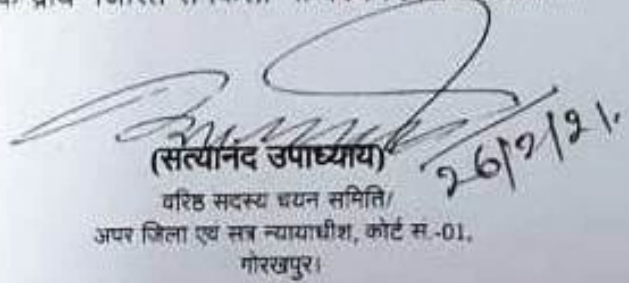 (सत्यानंद उपाध्याय)
26/2/21.
वरिष्ठ सदस्य चयन समिति/
अपर जिला एवं सत्र न्यायाधीश, कोर्ट सं.-01,
गोरखपुर।